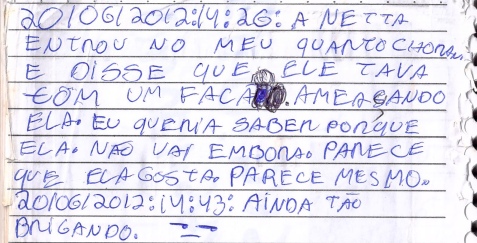 20/06/2012:14:26: A NETTA
ENTROU NO MEU QUANTO CHORAN
E DISSE QUE ELE TAVA
COM UM FACA. AMEAÇANDO
ELA. EU QUERIA SABER PORQUE
ELA. NÃO VAI EMBORA. PARECE
QUE ELA GOSTA. PARECE MESMO.
20/06/2012:14:43: AINDA TÃO
BRIGANDO.